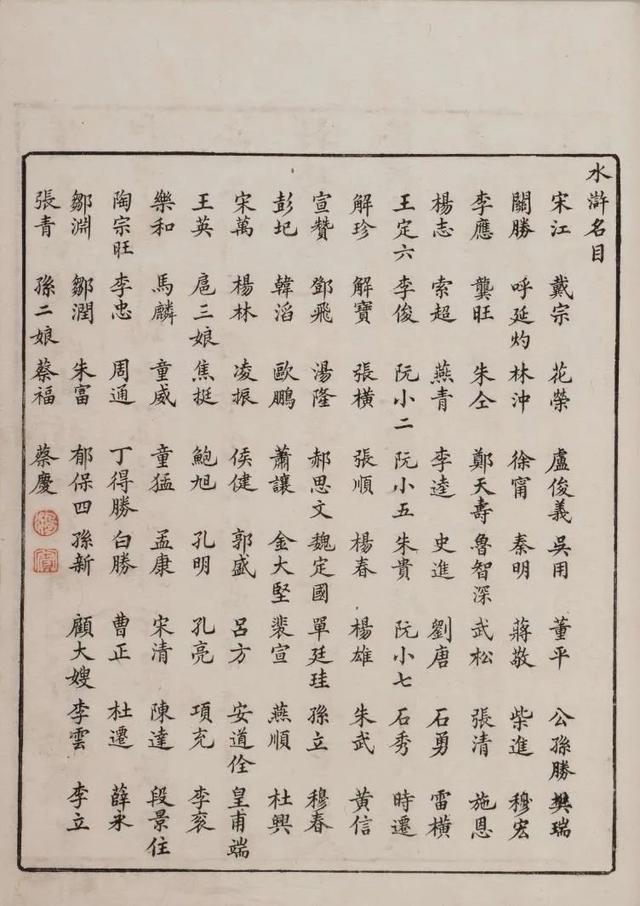 水滸名目
宋江 戴宗 花榮 盧俊義 吳用 董平 公孫勝 樊瑞
關勝 呼延灼 林沖 徐甯 秦明 蔣敬 柴進 穆宏
李應 龔旺 朱仝 鄭天壽 魯智深 武松 張清 施恩
楊志 索超 燕青 李逵 史進 劉唐 石勇 雷橫
王定六 李俊 阮小二 阮小五 朱貴 阮小七 石秀 時遷
解珍 解寶 張橫 張順 楊春 楊雄 朱武 黃信
宣贊 鄧飛 湯隆 郝思文 魏定國 單廷珪 孫立 穆春
彭圯 韓滔 歐鵬 蕭讓 金大堅 裴宣 燕順 杜興
宋萬 楊林 凌振 侯健 郭盛 呂方 安道佺 皇甫端
王英 扈三娘 焦挺 鮑旭 孔明 孔亮 項充 李衮
樂和 馬麟 童威 童猛 孟康 宋清 陳達 段景住
陶宗旺 李忠 周通 丁得勝 白勝 曹正 杜遷 薛永
鄒淵 鄒潤 朱富 郁保四 孫新 顧大嫂 李雲 李立
張青 孫二娘 蔡福 蔡慶